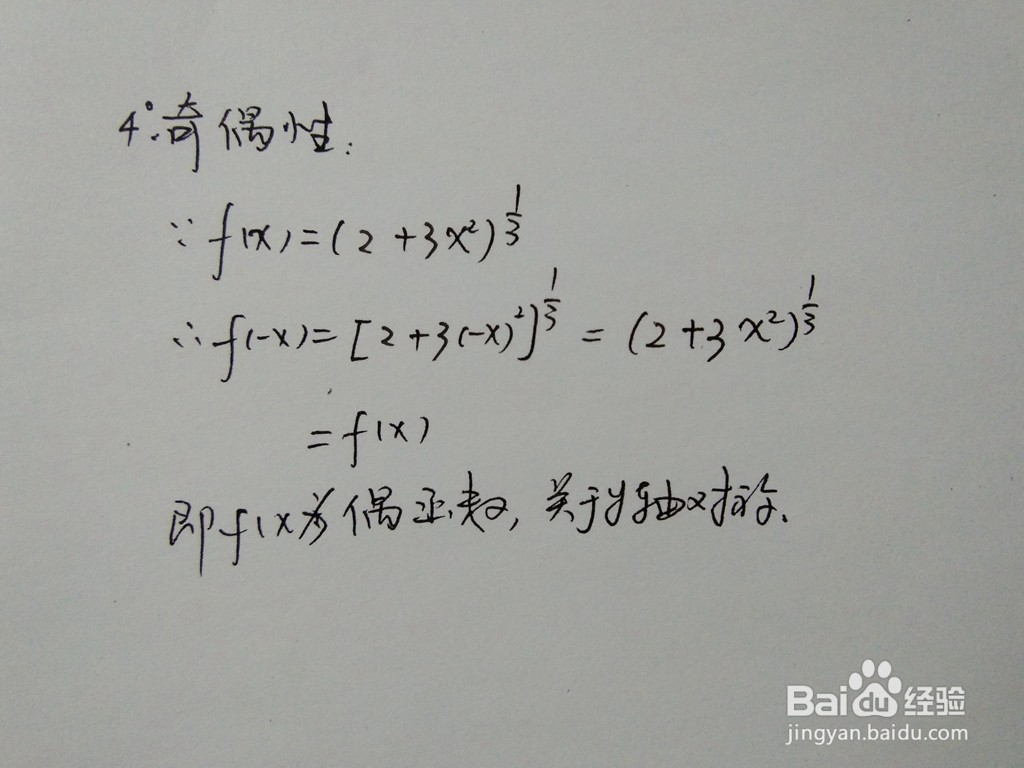 4°.奇偶性:
∵ f(x)=(2+3x²)^{1/3}
∴ f(-x)=[2+3(-x)²]^{1/3} = (2+3x²)^{1/3}
=f(x)
即f(x为偶函数,关于y轴对称.
Bai du 经验
jingyan.baidu.com